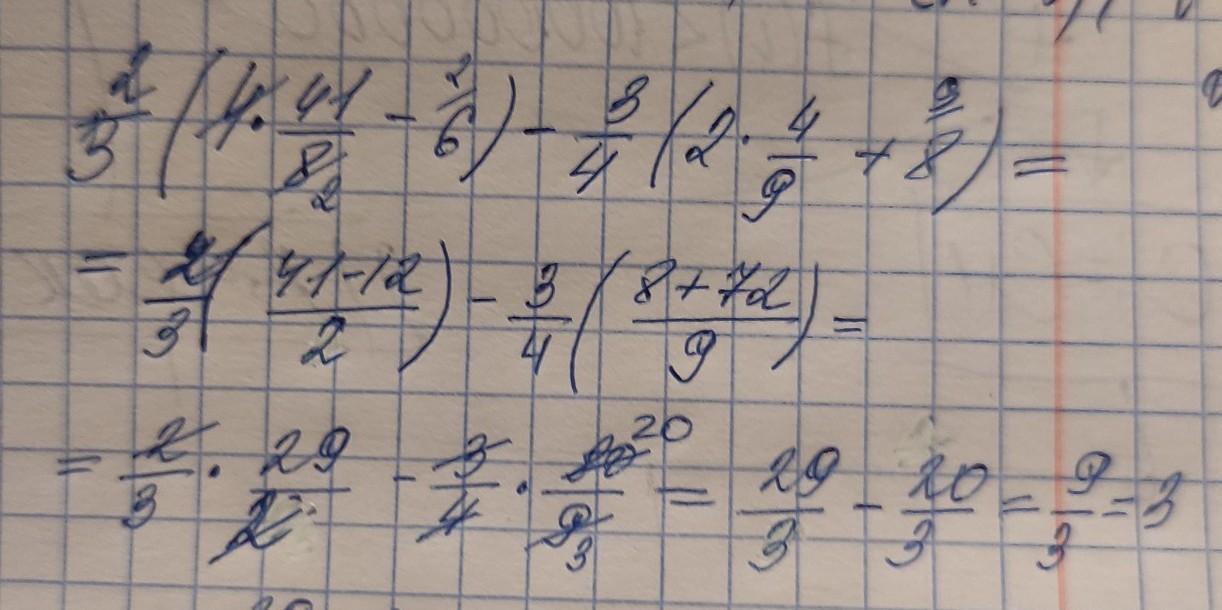 2/3 (4 · 41/8 2 - 2/6) - 3/4 (2 · 4/9 + 9/8) =
= 2/3 (41-12/2) - 3/4 (8+72/9) =
= 2/3 · 29/2 - 3/4 · 80 20/9 3 = 29/3 - 20/3 = 9/3 = 3